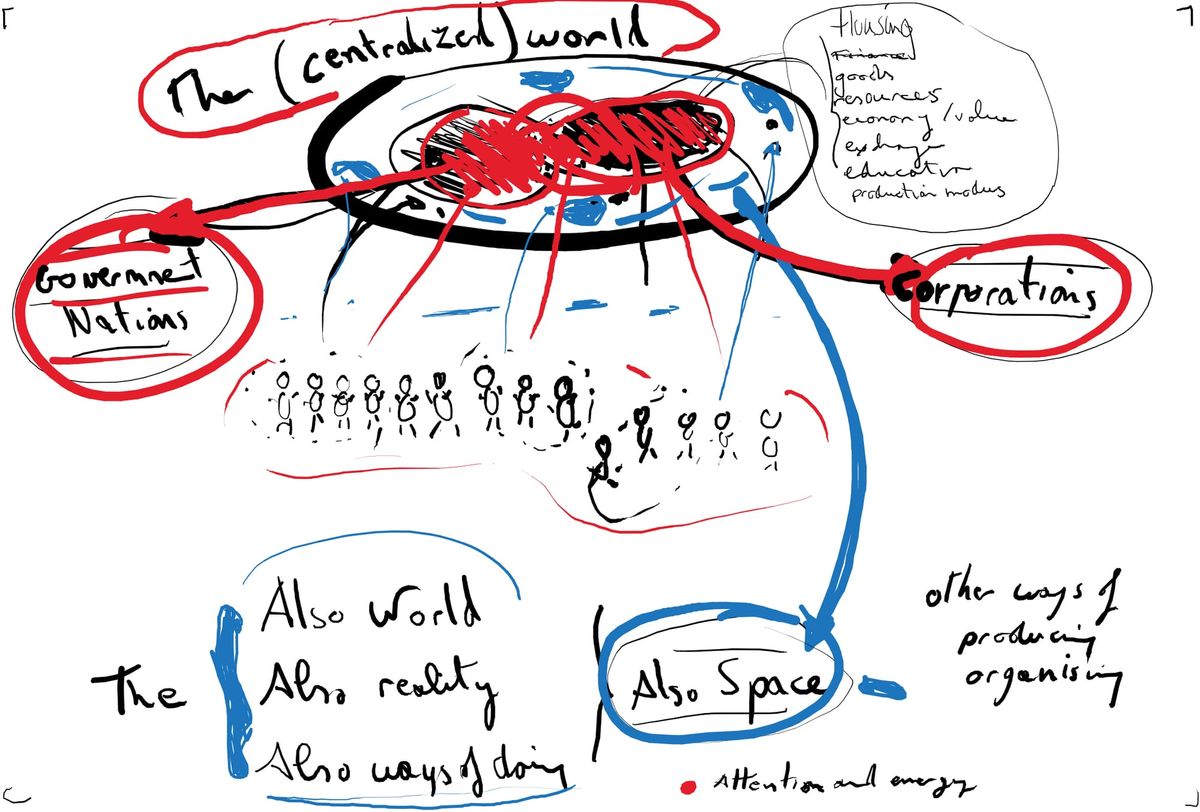 The (centralized) world
Housing
Finance
goods
resources
economy / value
exchange
education
production modus
Government
Nations
Corporations
The
Also World
Also reality
Also ways of doing
Also Space
other ways of
producing
organising
Attention and energy